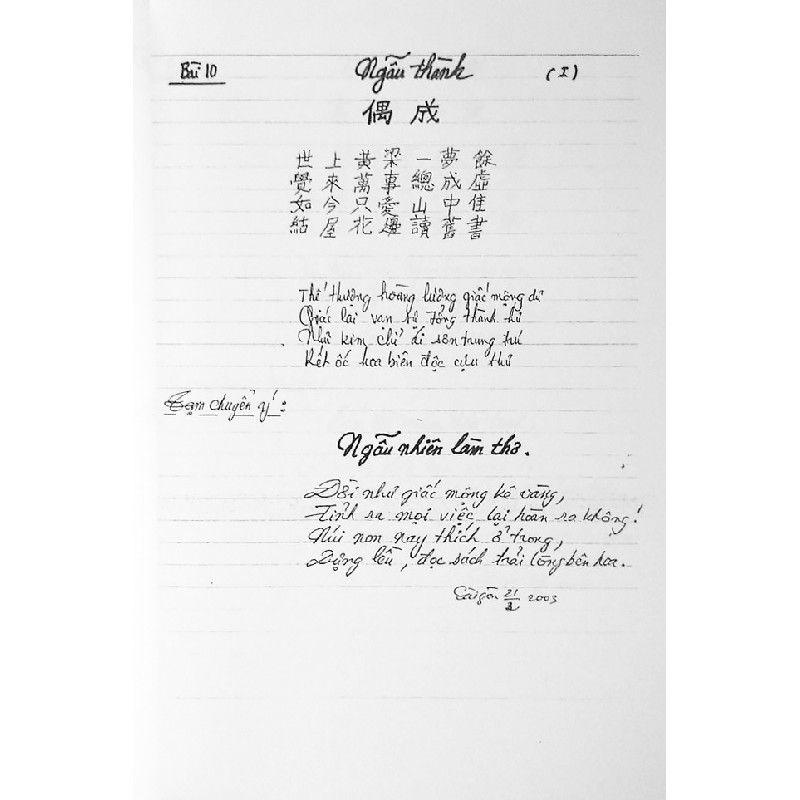 Bài 10
Ngẫu thành
(I)
偶成
世上黃梁一夢餘
覺來萬事總成虛
如今只愛山中住
結屋花邊讀舊書
Thế thượng hoàng lương giấc mộng dư
Giác lai vạn sự tổng thành hư
Như kim chỉ ái sơn trung trú
Kết ốc hoa biên độc cựu thư
Tạm chuyển ý:
Ngẫu nhiên làm thơ.
Đời như giấc mộng kê vàng,
Tỉnh ra mọi việc lại hoàn ra không!
Núi non nay thích ở trong,
Dựng lều, đọc sách trải lòng bên hoa.
Sài gòn 21/2 2003